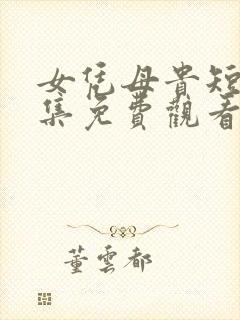 女凭母貴短
集免費觀看
董雲都